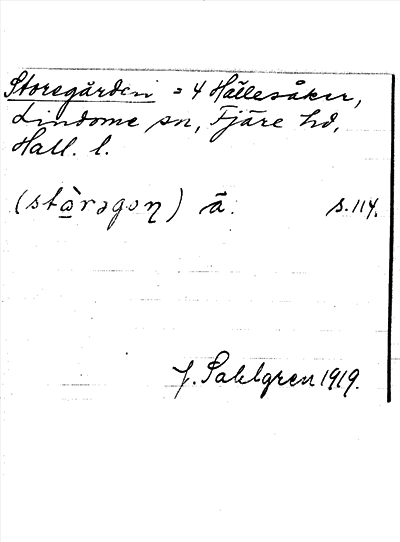 Storegården = 4 Hällesåker,
Lindome sn, Fjäre hd,
Hall. l.
(stò̱rəgɔn) ā. s. 114.
J. Sahlgren 1919.